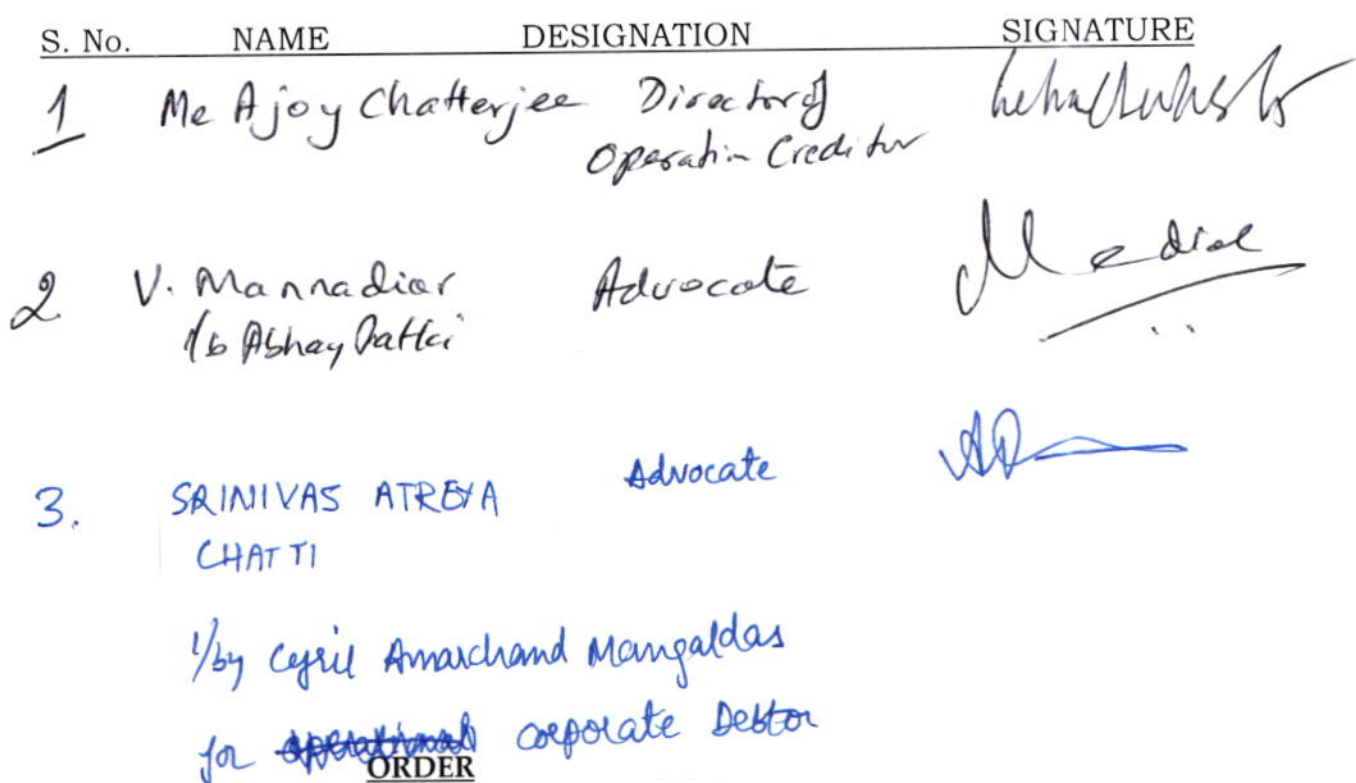 S. No. NAME DESIGNATION SIGNATURE
1 Me Ajoy Chatterjee Director of
Operation Creditor
2 V. Mannadiar Advocate
i/b Abhay Patki
3. SRINIVAS ATREYA Advocate
CHATTI
i/by Cyril Amarchand Mangaldas
for corporate Debtor
ORDER